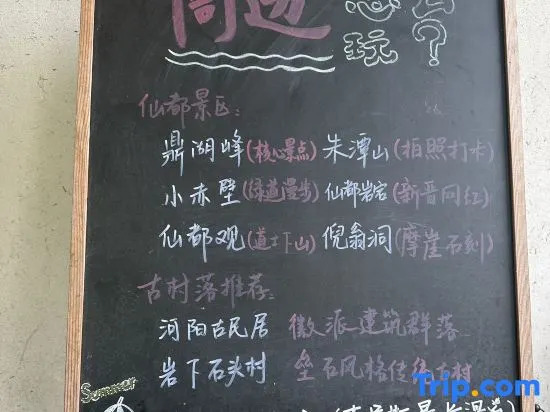 周边怎么玩?
仙都景区:
鼎湖峰(核心景点) 朱潭山(拍照打卡)
小赤壁(绿道漫步) 仙都岩宕(新晋网红)
仙都观(道士下山) 倪翁洞(摩崖石刻)
古村落推荐:
河阳古民居 徽派建筑群落
岩下石头村 垒石风格传统古村
Summer
Trip.com